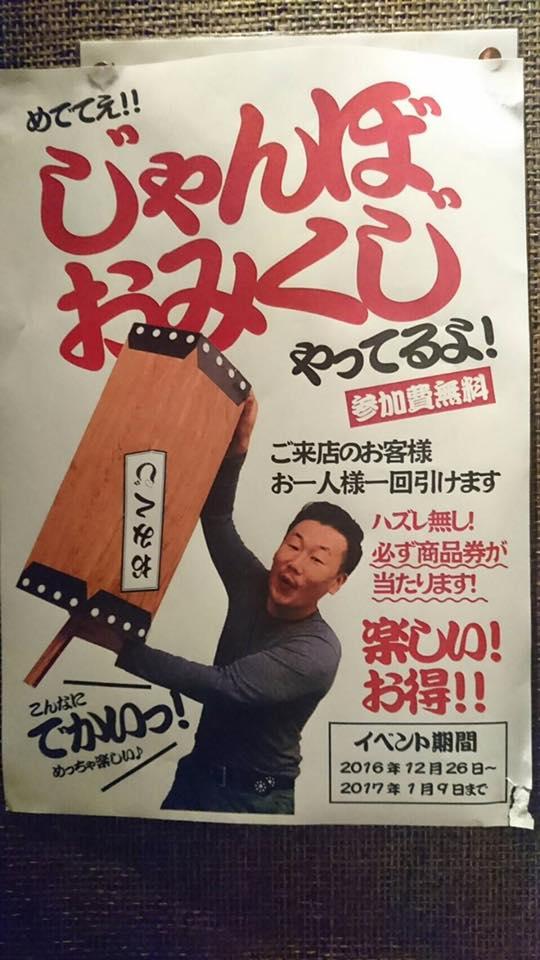 めでてえ!!
じゃんぼ
おみくじ
やってるよ!
参加費無料
ご来店のお客様
お一人様一回引けます
ハズレ無し!
必ず商品券が
当たります!
楽しい!
お得!!
おみくじ
こんなに
でかいっ!
めっちゃ楽しい♪
イベント期間
2016年12月26日〜
2017年1月9日まで